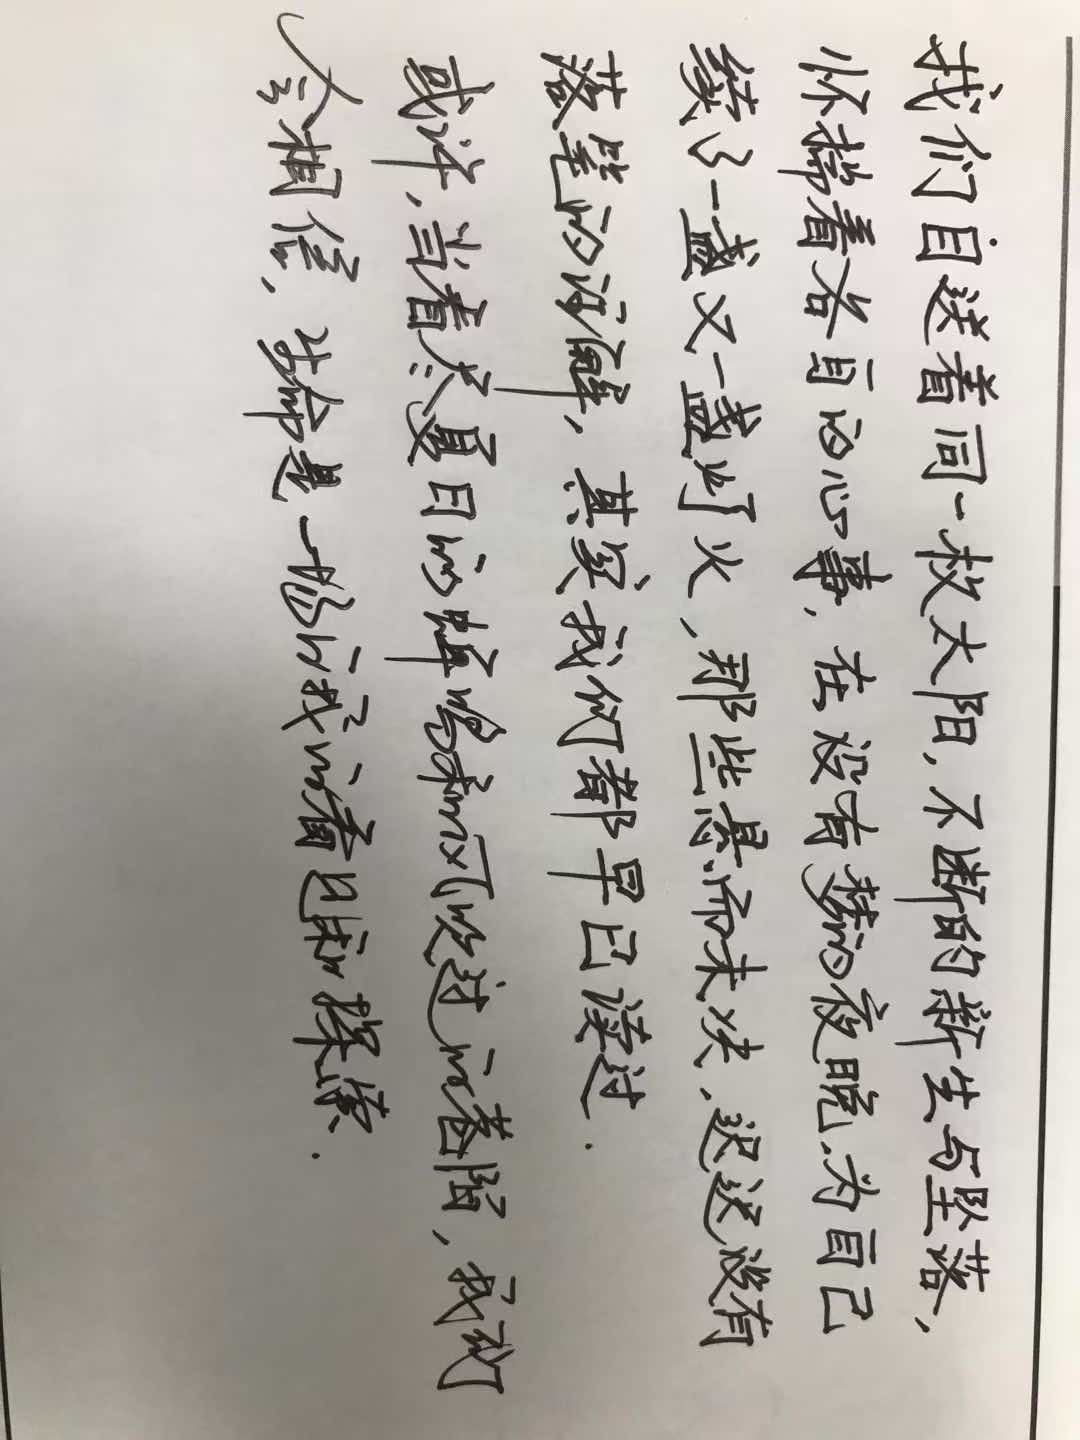 我们目送着同一枚太阳,不断的新生与坠落,
怀揣着各自的心事,在没有梦的夜晚,为自己
续了一盏又一盏灯火,那些悬而未决、迟迟没有
落笔的注解,其实我们都早已读过.
或许,当看尽夏日的蝉鸣和过的,我们
会相信,生命是一场我的和探索.